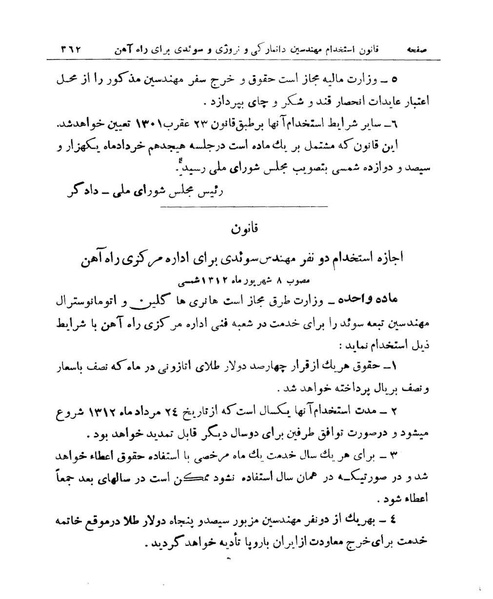 صفحه قانون استخدام مهندسین دانمارکی و نروژی و سوئدی برای راه آهن ۳۶۲
۵ ـ وزارت مالیه مجاز است حقوق و خرج سفر مهندسین مذکور را از محل
اعتبار عایدات انحصار قند و شکر و چای بپردازد .
۶ـ سایر شرایط استخدام آنها بر طبق قانون ۲۳ عقرب ۱۳۰۱ تعیین خواهد شد.
این قانون که مشتمل بر یك ماده است در جلسه هیجدهم خرداد ماه یکهزار و
سیصد و دوازده شمسی بتصویب مجلس شورای ملی رسید.
رئیس مجلس شورای ملی ـ دادگر
قانون
اجازه استخدام دو نفر مهندس سوئدی برای اداره مرکزی راه آهن
مصوب ۸ شهریور ماه ۱۳۱۲ شمسی
ماده واحده ـ وزارت طرق مجاز است هانری ها گلین و اتومانوسترال
مهندسین تبعه سوئد را برای خدمت در شعبه فنی اداره مرکزی راه آهن با شرایط
ذیل استخدام نماید :
۱ـ حقوق هر یك از قرار چهارصد دولار طلای اتازونی در ماه که نصف باسعار
و نصف بریال پرداخته خواهد شد .
۲ ـ مدت استخدام آنها یکسال است که از تاریخ ۲۴ مرداد ماه ۱۳۱۲ شروع
میشود و در صورت توافق طرفین برای دو سال دیگر قابل تمدید خواهد بود .
۳ ـ برای هر یك سال خدمت یك ماه مرخصی با استفاده حقوق اعطاء خواهد
شد و در صورتیکه در همان سال استفاده نشود ممکن است در سالهای بعد جمعاً
اعطاء شود .
۴ ـ بهر یك از دو نفر مهندسین مزبور سیصد و پنجاه دولار طلا در موقع خاتمه
خدمت برای خرج معاودت از ایران باروپا تأدیه خواهد گردید .